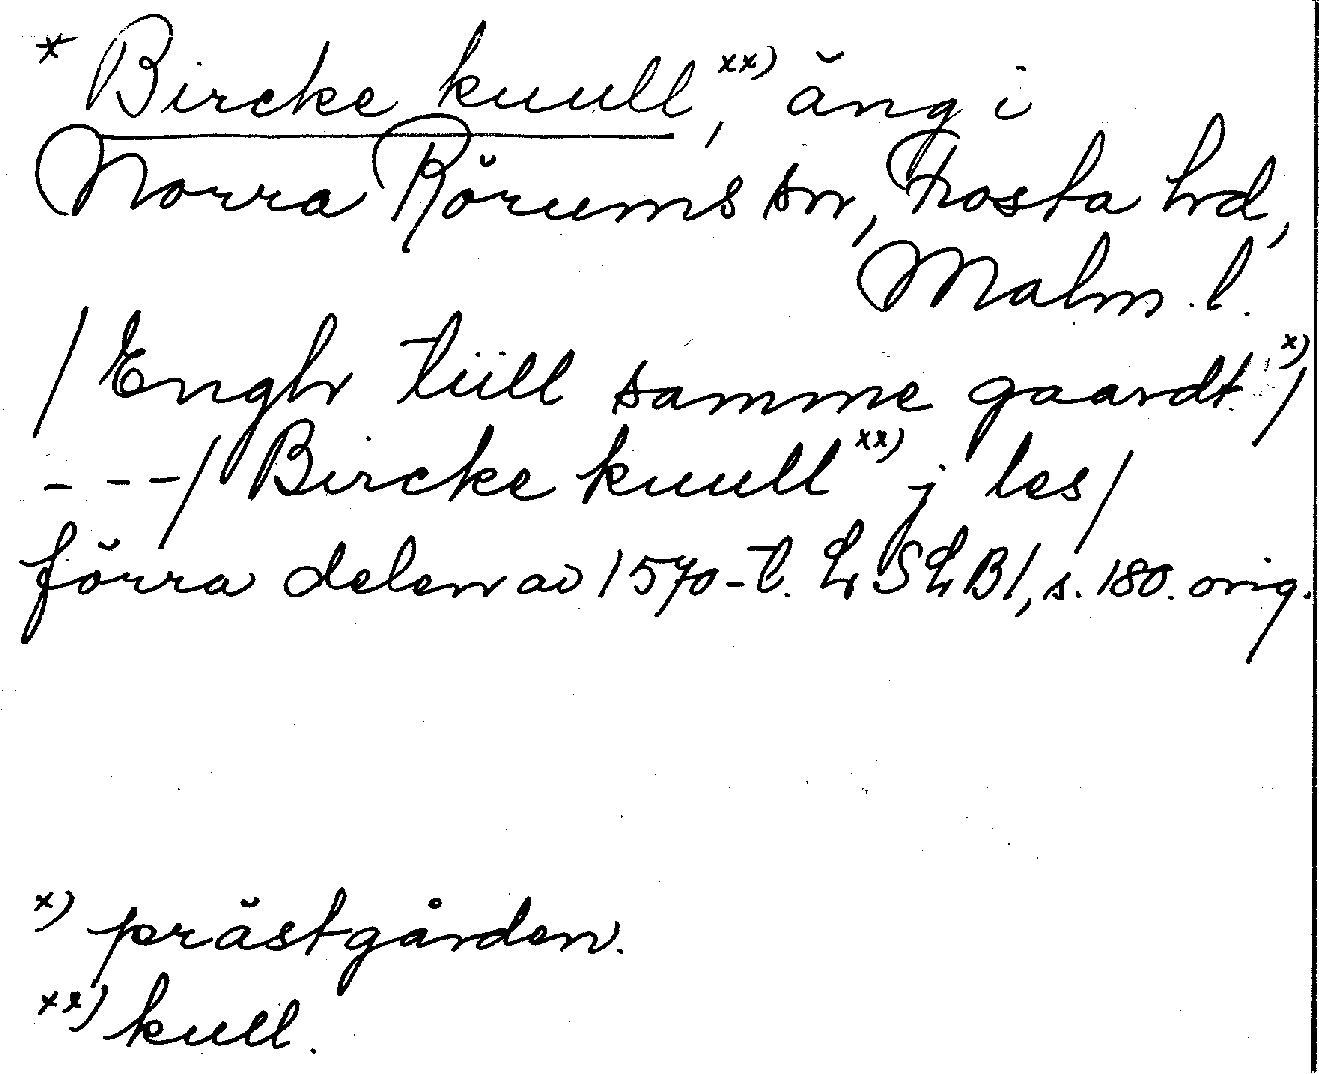 * Bircke kuull,xx) äng i
Norra Rörums sn, Frosta hd,
Malm. l.
/Engh tiill samme gaardt x)/
- - -/ Bircke kuull xx) j les/
förra delen av 1570-t. LSLB1, s. 180. orig.
x) prästgården.
xx) kull.